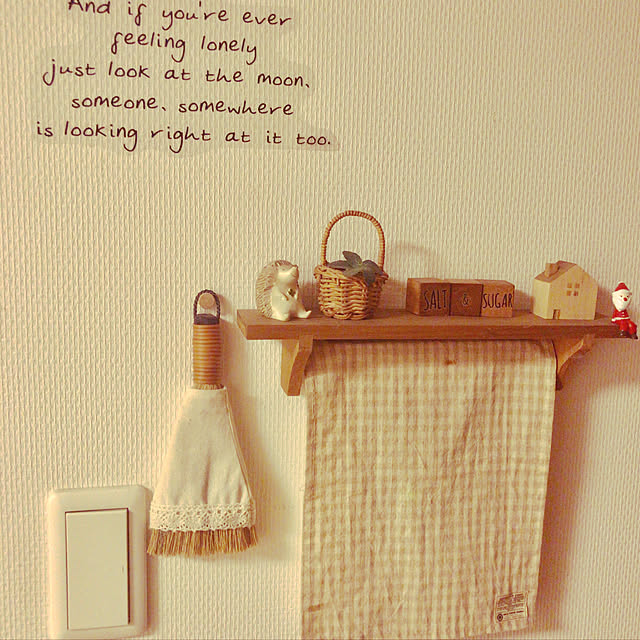 And if you're ever
feeling lonely
just look at the moon.
someone, somewhere
is looking right at it too.
SALT & SUGAR